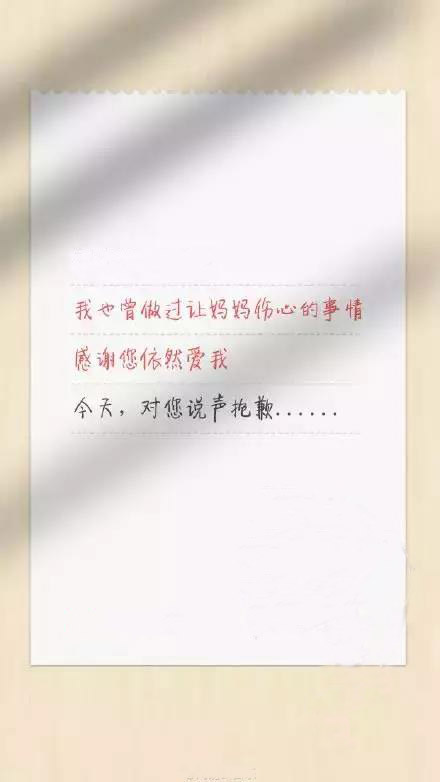 我也曾做过让妈妈伤心的事情
感谢您依然爱我
今天，对您说声抱歉......